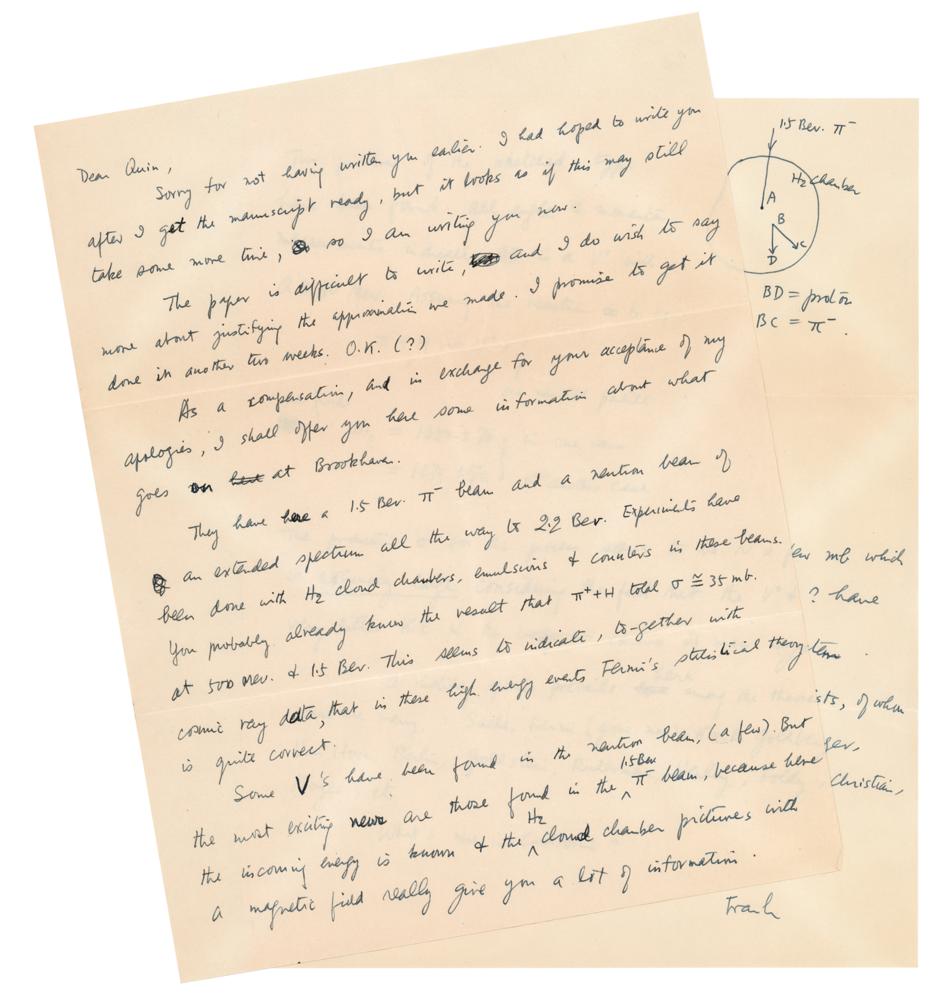 Dear Quin,
Sorry for not having written you earlier. I had hoped to write you
after I get the manuscript ready, but it looks as if this may still
take some more time, so I am writing you now.
The paper is difficult to write, and I do wish to say
more about justifying the approximation we made. I promise to get it
done in another two weeks. O.K. (?)
As a compensation, and in exchange for your acceptance of my
apologies, I shall offer you here some information about what
goes on at Brookhaven.
They have here a 1.5 Bev. π⁻ beam and a neutron beam of
an extended spectrum all the way to 2.2 Bev. Experiments have
been done with H₂ cloud chambers, emulsions & counters in these beams.
You probably already know the result that π⁺+H total σ ≅ 35 mb.
at 500 Mev. & 1.5 Bev. This seems to indicate, to-gether with
cosmic ray data, that in these high energy events Fermi's statistical theory
is quite correct.
Some V's have been found in the neutron beam, (a few). But
the most exciting news are those found in the 1.5 Bev π⁻ beam, because here
the incoming energy is known & the H₂ cloud chamber pictures with
a magnetic field really give you a lot of information.
1.5 Bev. π⁻
H₂ chamber
A
B
C
D
BD = proton
BC = π⁻.
few mb which
? have
ists, of whom
Christian,
Frank